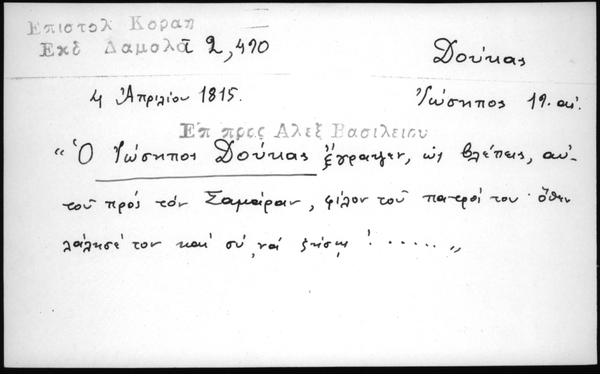 Επιστολ Κοραη
Εκδ Δαμαλᾶ 2,490
Δούκας
4 Ἀπριλίου 1815.
Ἰώσηπος 19. αἰ.
Επ προς Αλεξ Βασιλειου
"Ὁ Ἰώσηπος Δούκας ἔγραψεν, ὡς βλέπεις, αὐ-
τοῦ πρός τόν Σαμαίραν, φίλον τοῦ πατρός του· ὅθεν
λάλησέ τον καί σύ, νά ζήσῃς! ..... "